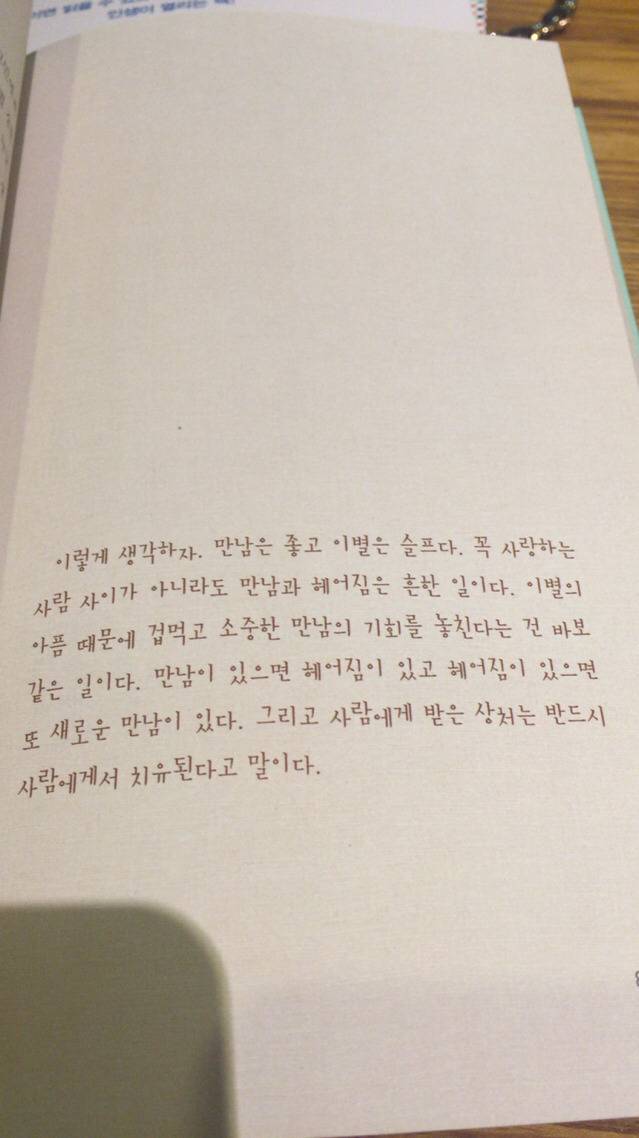 인생이 열리는 책!
이렇게 생각하자. 만남은 좋고 이별은 슬프다. 꼭 사랑하는
사람 사이가 아니라도 만남과 헤어짐은 흔한 일이다. 이별의
아픔 때문에 겁먹고 소중한 만남의 기회를 놓친다는 건 바보
같은 일이다. 만남이 있으면 헤어짐이 있고 헤어짐이 있으면
또 새로운 만남이 있다. 그리고 사람에게 받은 상처는 반드시
사람에게서 치유된다고 말이다.